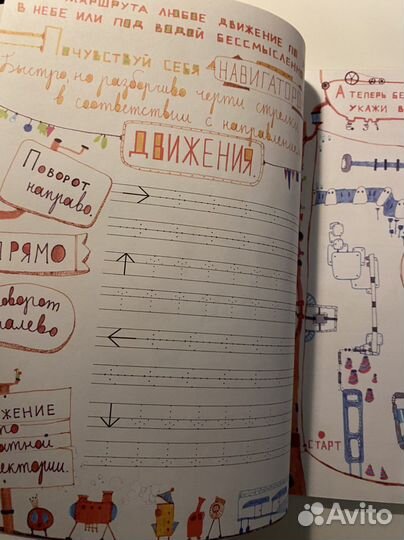 МАРШРУТА ЛЮБОЕ ДВИЖЕНИЕ ПО
В НЕБЕ ИЛИ ПОД ВОДОЙ БЕССМЫСЛЕННО
ПОЧУВСТВУЙ СЕБЯ НАВИГАТОРОМ
Быстро, но разборчиво черти стрелки
в соответствии с направлением
ДВИЖЕНИЯ
Поворот
направо.
ПРЯМО
поворот
налево
ЖЕНИЕ
по
атной
ектории.
А ТЕПЕРЬ БЕ
УКАЖИ В
СТАРТ
Avito